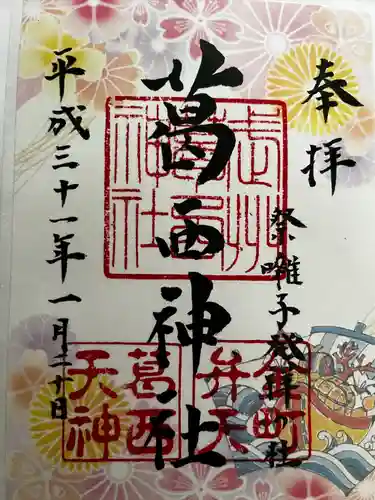 奉拝
祭囃子発祥の社
葛西神社
平成三十一年一月二十日
武州
葛西
神社
葛西
天神
金町
弁天